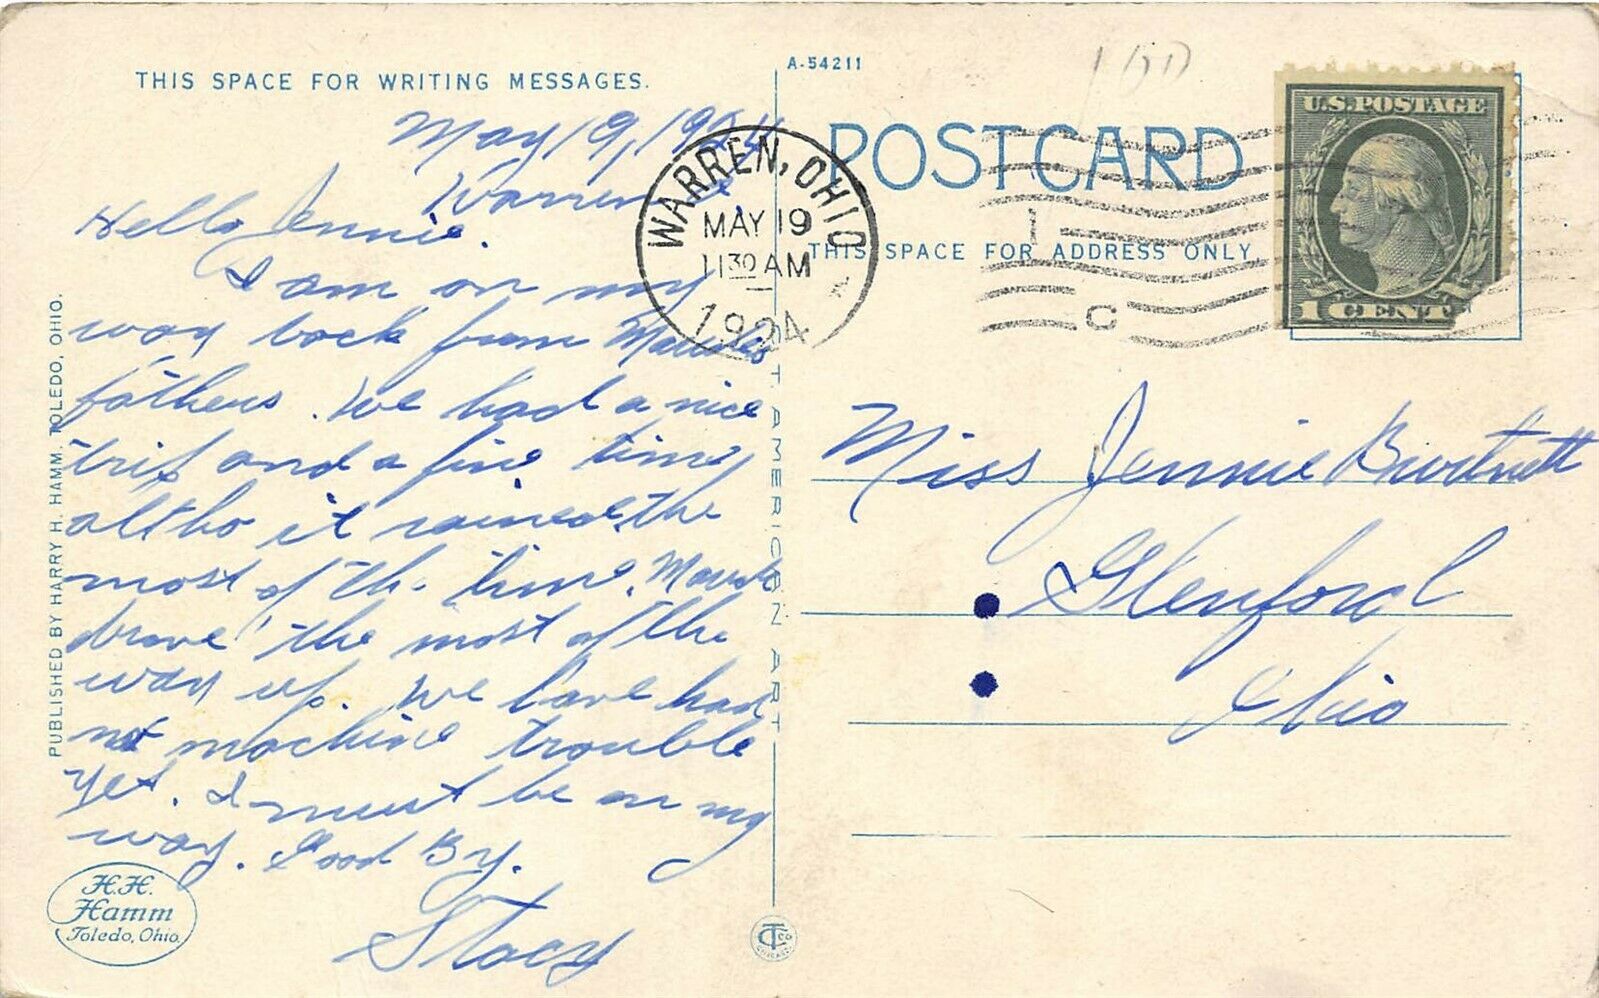 THIS SPACE FOR WRITING MESSAGES.
May 19, 1924
Warren O
Hello Jennie.
I am on my
way back from
fathers. We had a nice
trip and a fine time
altho it rained the
most of the time.
drove the most of the
way up. We have had
not machine trouble
yet. I must be on my
way. Good By.
Stacy
PUBLISHED BY HARRY H. HAMM, TOLEDO, OHIO.
H.H.
Hamm
Toledo, Ohio.
A-54211
POST CARD
THIS SPACE FOR ADDRESS ONLY.
WARREN, OHIO
MAY 19
11 30 AM
1924
1 C
U.S. POSTAGE
1 CENT
Miss Jennie Burtnett
Glenford
Ohio
AMERICAN ART
CT CO
CHICAGO